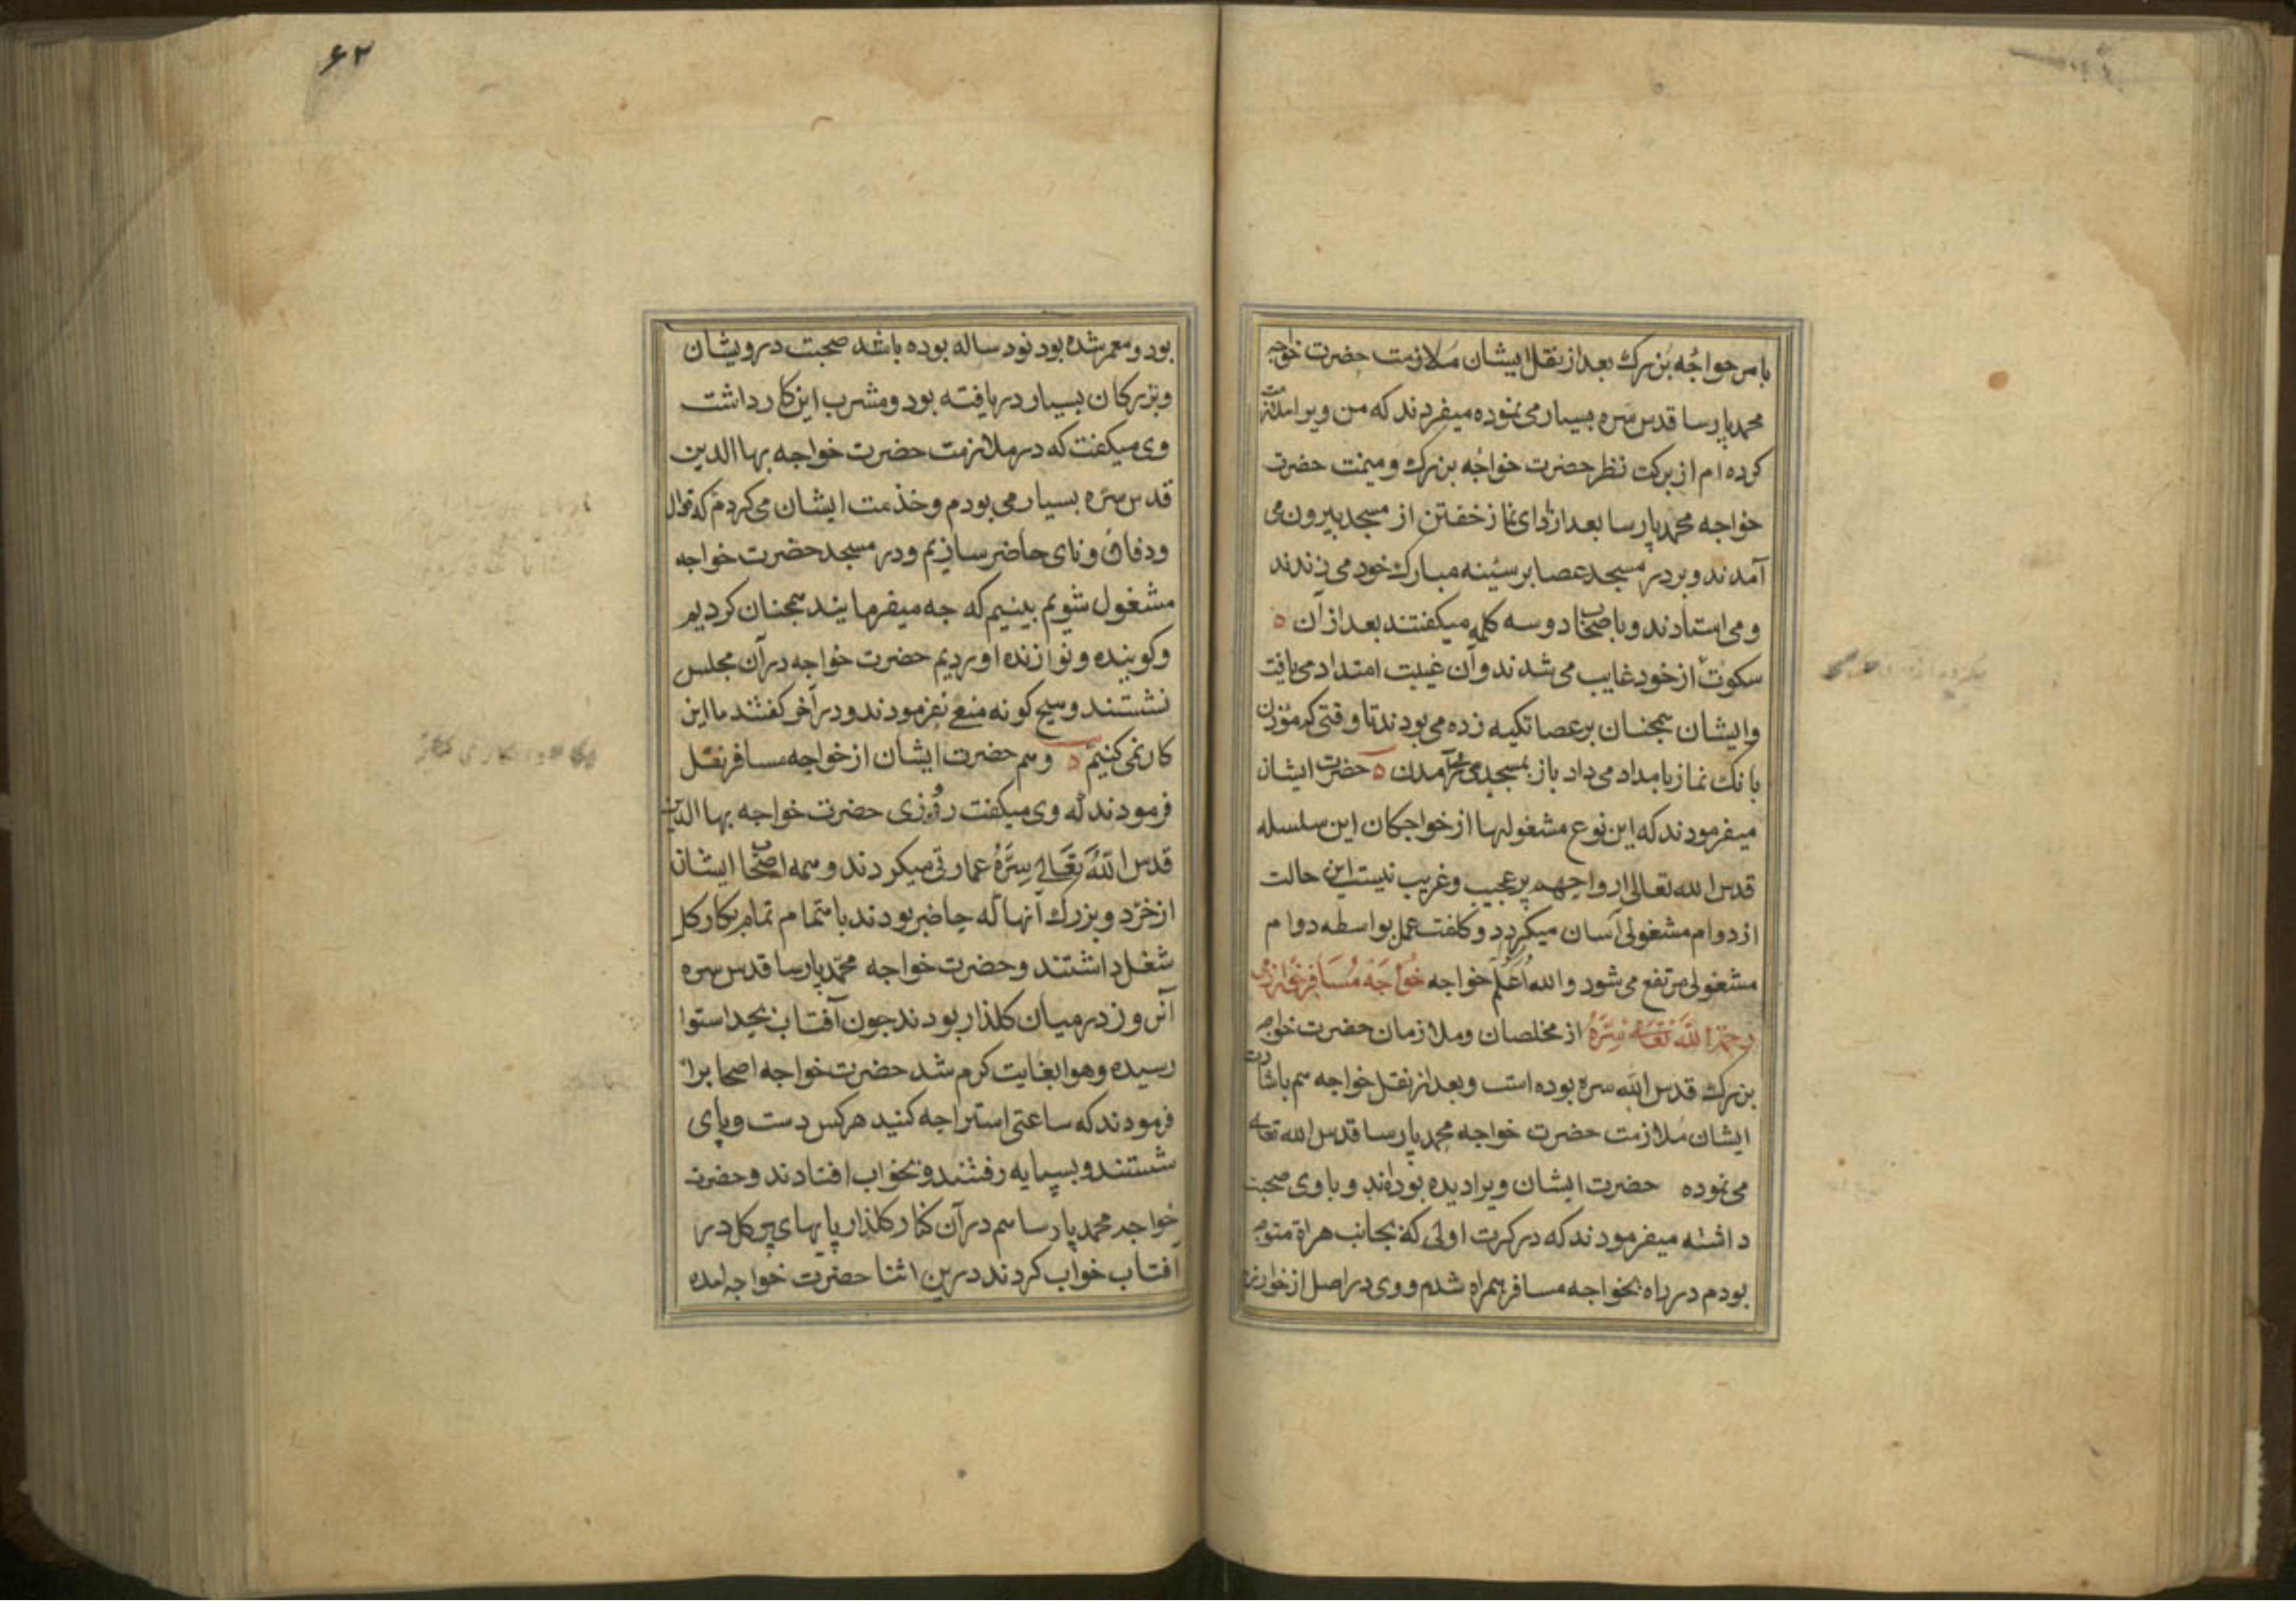 بامر حواجُه بَنرك بعد از نقل ایشان مَلازمت حضرت خواجه
محمد پارسا قدس سَره بسیار می نموده میفردند که من ویرا ملازمت
کرده ام از برکت نظر حضرت خواجُه بنرك و میمنت حضرت
خواجه محمد پارسا بعد از ادای نماز خفتن از مسجد بیرون می
آمدند و بر در مسجد عصا بر سینه مبارك خود می زدند
و می استادند و با صحاب دو سه کلمه میکفتند بعد از ان ه
سکوت از خود غایب می شدند و آن غیبت امتداد می یافت
و ایشان همجنان بر عصا تکیه زده می بودند تا وقتی که موذن
بانك نماز بامداد می داد باز بمسجد می درآمدن ه حضرت ایشان
میفرمودند که این نوع مشغولیها از خواجکان این سلسله
قدس الله تعالی ارواحهم پر عجیب و غریب نیست این حالت
از دوام مشغولی آسان میکردد و کلفت عمل بواسطه دوام
مشغولی مرتفع می شود والله اَعَلم خواجه خُواجَه مُسَافِر خوارزمی
رحمة الله تعالی سِرّهُ از مخلصان و ملازمان حضرت خواجه
بنرك قدس الله سره بوده است و بعد از نقل خواجه هم باشارت
ایشان مُلازمت حضرت خواجه محمد پارسا قدس الله تعالی
می نموده حضرت ایشان ویرا دیده بوده اند و با وی صحبت
داشته میفرمودند که در کرت اولی که بجانب هراة متوجه
بودم در راه بخواجه مسافر همراه شدم و وی در اصل از خوارزم
۶۲
بود و معمر شده بود نود ساله بوده باشد صحبت درویشان
و بزرکان بسیار دریافته بود و مشرب این کار داشت
وی میکفت که در ملازمت حضرت خواجه بها الدین
قدس سره بسیار می بودم و خذمت ایشان می کردم که قوال
و دفاف و نای حاضر سازیم و در مسجد حضرت خواجه
مشغول شویم بینیم که جه میفرمایند همجنان کردیم
و کوینده و نوازنده اوردیم حضرت خواجه در آن مجلس
نشستند و هیج کونه منع نفرمودند و در آخر کفتند ما این
کار نمی کنیم ه و هم حضرت ایشان از خواجه مسافر نقل
فرمودند که وی میکفت روزی حضرت خواجه بها الدین
قدس اللهُ تَعَالی سِرّهُ عمارتی میکردند و همه اصحاب ایشان
از خرد و بزرك آنها که حاضر بودند باهتمام تمام بکار کل
شغل داشتند و حضرت خواجه محمّد پارسا قدس سره
آنروز در میان کلذار بودند جون آفتاب بحد استوا
رسیده و هوا بغایت کرم شد حضرت خواجه اصحابرا
فرمودند که ساعتی استراجه کنید هرکس دست و پای
شستند و بسایه رفتند و بخواب افتادند و حضرت
خواجه محمد پارسا هم در آن کنار کلذار پایهای پر کل در
آفتاب خواب کردند درین اثنا حضرت خواجه امده